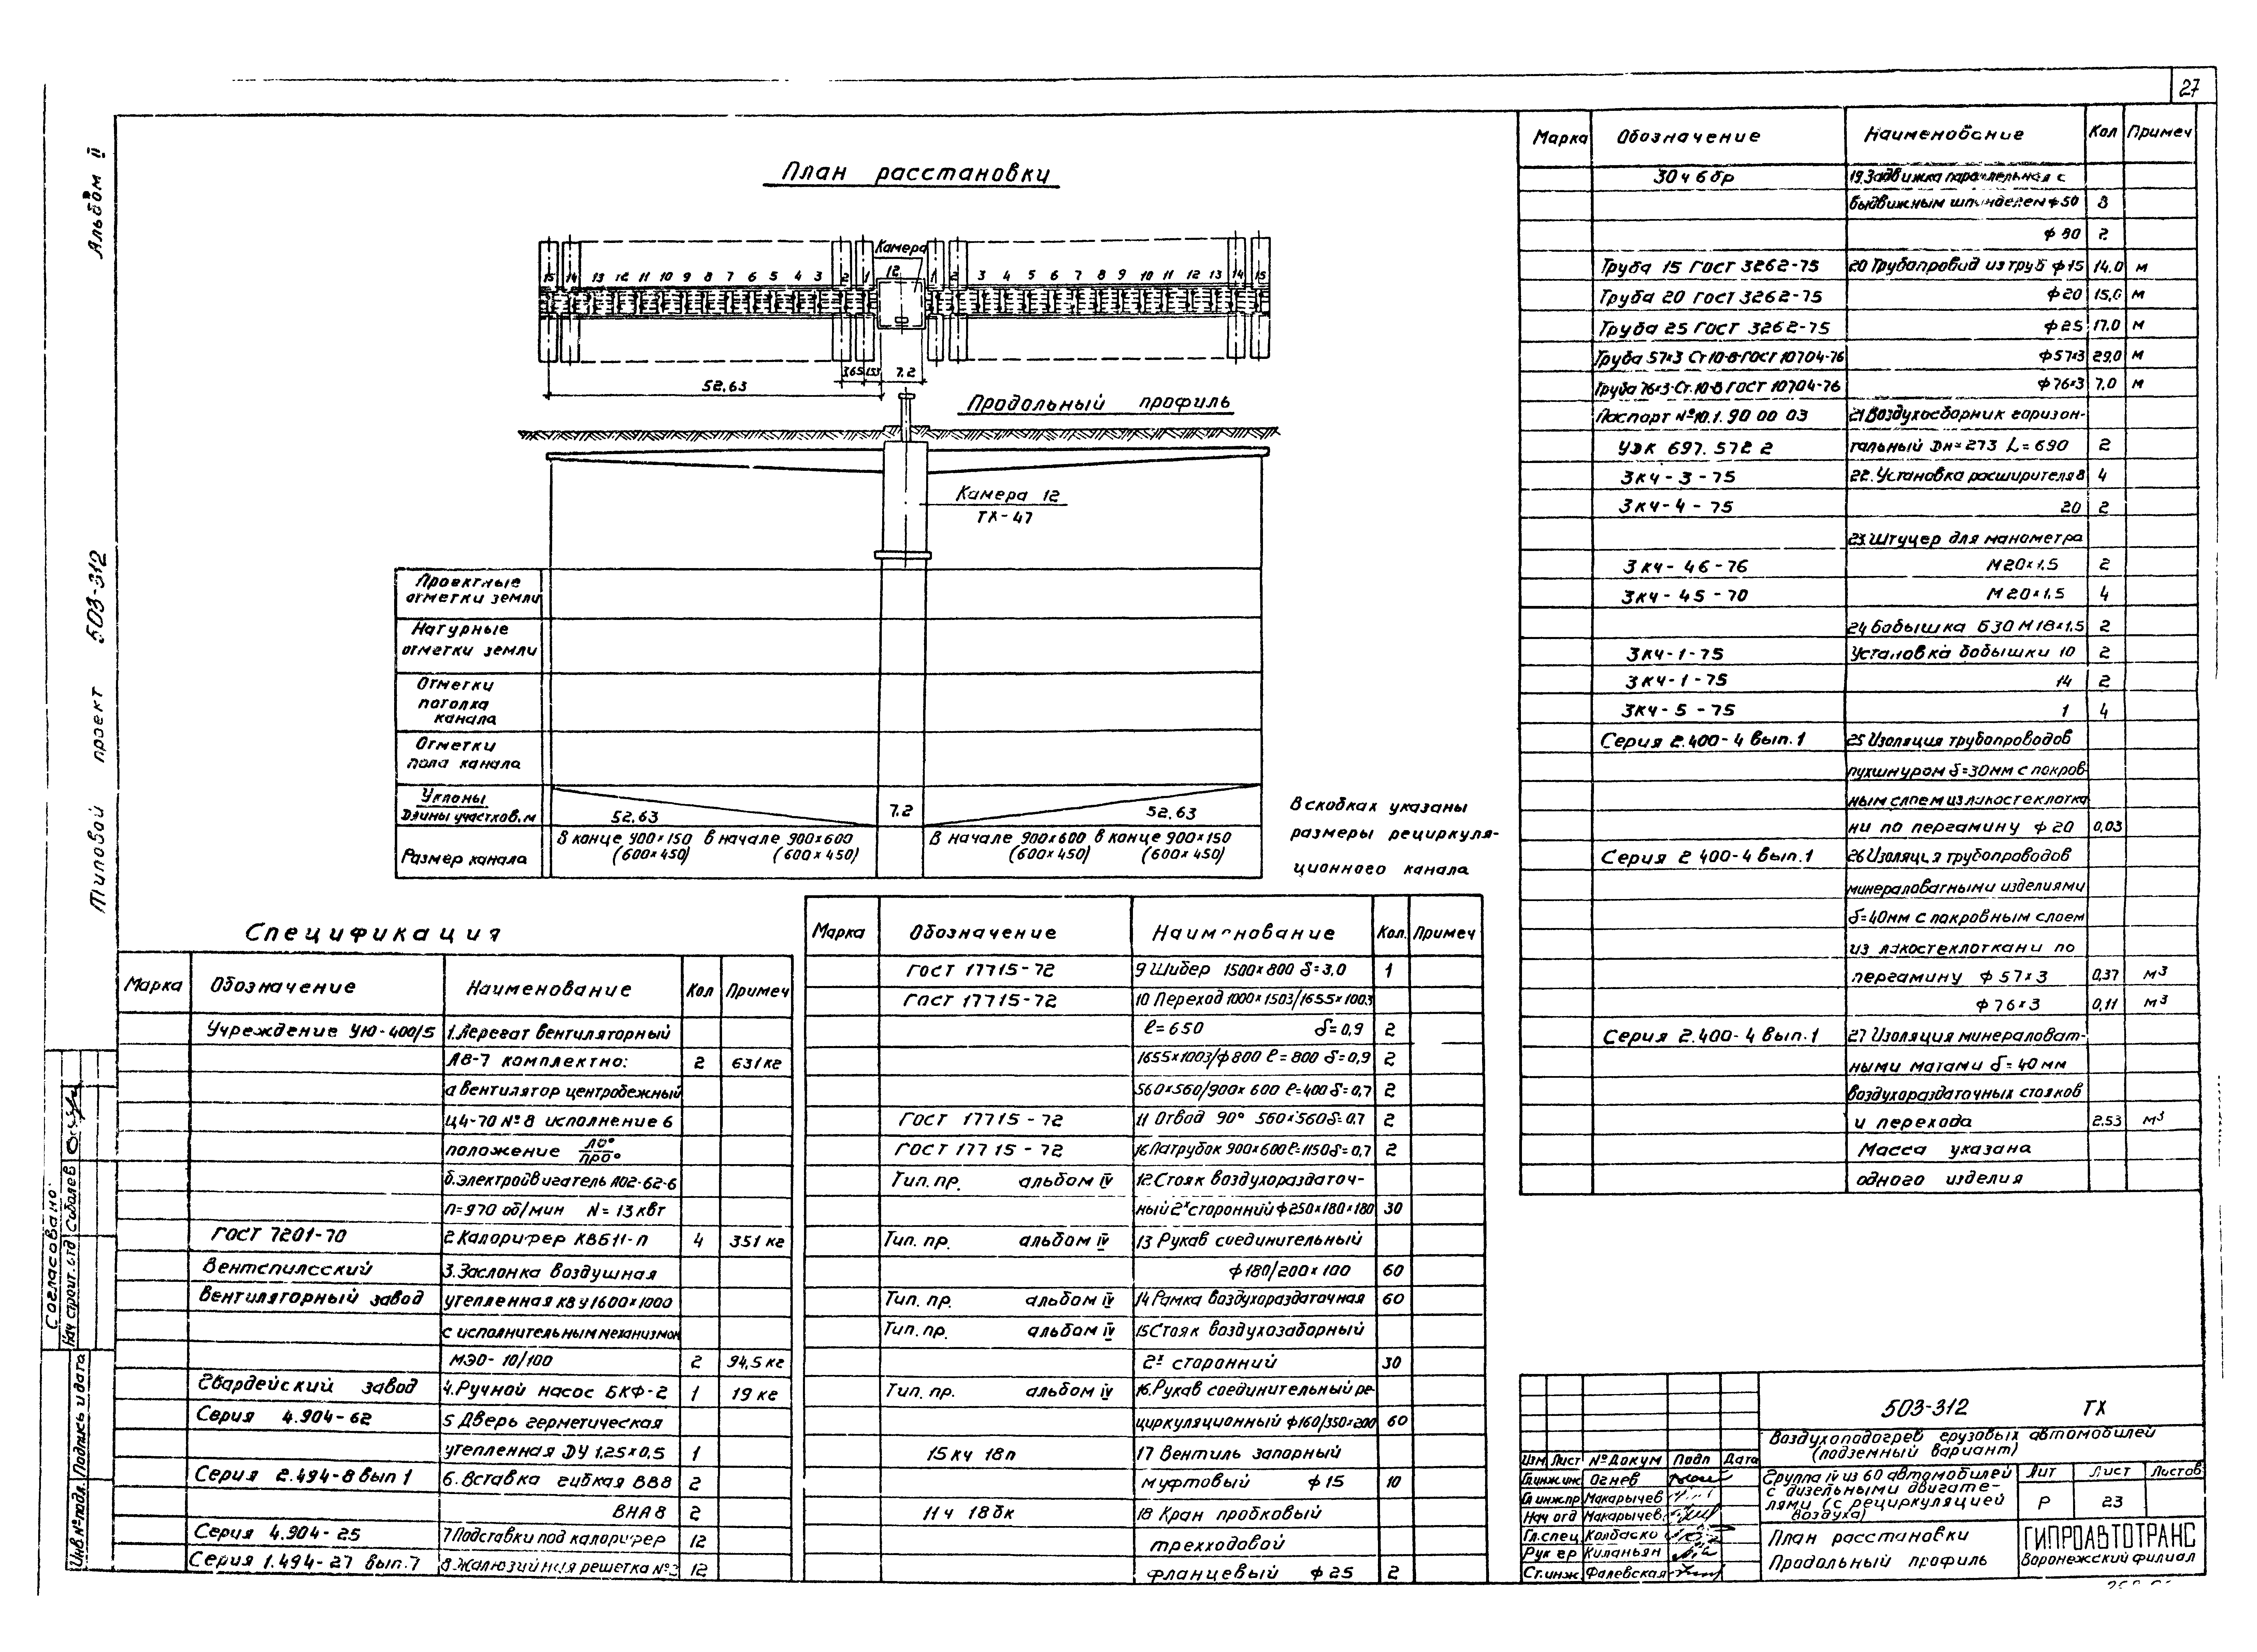 27
Альбом II
Типовой проект 503-312
План расстановки
Камера
12
15 14 13 12 11 10 9 8 7 6 5 4 3 2 1
1 2 3 4 5 6 7 8 9 10 11 12 13 14 15
3.65 1.53 7.2
52.63
Продольный профиль
Камера 12
ТХ-47
Проектные
отметки земли
Натурные
отметки земли
Отметки
потолка
канала
Отметки
пола канала
Уклоны
Длины участков, м
52.63
7.2
52.63
Размер канала
В конце 900×150 в начале 900×600
(600×450) (600×450)
В начале 900×600 в конце 900×150
(600×450) (600×450)
В скобках указаны
размеры рециркуля-
ционного канала
Спецификация
Марка Обозначение Наименование Кол Примеч
Учреждение УЮ-400/5 1.Агрегат вентиляторный
А8-7 комплектно: 2 631 кг
а вентилятор центробежный
Ц4-70 №8 исполнение 6
положение Л0°/ПР0°
б.электродвигатель АО2-62-6
п=970 об/мин N=13 квт
ГОСТ 7201-70 2.Калорифер КВБ11-п 4 351 кг
Вентспилсский 3.Заслонка воздушная
вентиляторный завод утепленная КВУ1600×1000
с исполнительным механизмом
МЭО-10/100 2 94,5 кг
Гвардейский завод 4.Ручной насос БКФ-2 1 19 кг
Серия 4.904-62 5 Дверь герметическая
утепленная ДУ 1,25×0,5 1
Серия 2.494-8 вып 1 6.Вставка гибкая ВВ8 2
ВНА8 2
Серия 4.904-25 7 Подставки под калорифер 12
Серия 1.494-27 вып.7 8.Жалюзийная решетка №3 12
Марка Обозначение Наименование Кол. Примеч
ГОСТ 17715-72 9 Шибер 1500×800 δ=3,0 1
ГОСТ 17715-72 10 Переход 1000×1503/1655×1003
ℓ=650 δ=0,9 2
1655×1003/ф800 ℓ=800 δ=0,9 2
560×560/900×600 ℓ=400 δ=0,7 2
ГОСТ 17715-72 11 Отвод 90° 560×560 δ=0.7 2
ГОСТ 17715-72 16 Патрубок 900×600 ℓ=1150 δ=0,7 2
Тип. пр. альбом IV 12 Стояк воздухораздаточ-
ный 2х сторонний ф250×180×180 30
Тип. пр. альбом IV 13 Рукав соединительный
ф180/200×100 60
Тип. пр. альбом IV 14 Рамка воздухораздаточная 60
Тип. пр. альбом IV 15 Стояк воздухозаборный
2х сторонний 30
Тип. пр. альбом IV 16.Рукав соединительный ре-
циркуляционный ф160/350×200 60
15 кч 18п 17 Вентиль запорный
муфтовый ф15 10
11 ч 18 бк 18 Кран пробковый
трехходовой
фланцевый ф25 2
Марка Обозначение Наименование Кол Примеч
30 ч 6 бр 19.Задвижка параллельная с
выдвижным шпинделем ф50 8
ф 80 2
Труба 15 ГОСТ 3262-75 20 Трубопровод из труб ф15 14.0 м
Труба 20 ГОСТ 3262-75 ф20 15,0 м
Труба 25 ГОСТ 3262-75 ф25 17.0 м
Труба 57×3 Ст10-В-ГОСТ 10704-76 ф57×3 29.0 м
Труба 76×3-Ст.10-В ГОСТ 10704-76 ф76×3 7,0 м
Паспорт №10.1.90 00 03 21 Воздухосборник горизон-
УЭК 697.572 2 тальный Дн=273 L=690 2
ЗКЧ-3-75 22.Установка расширителя 8 4
ЗКЧ-4-75 20 2
23.Штуцер для манометра
ЗКЧ-46-76 М20×1,5 2
ЗКЧ-45-70 М20×1,5 4
24 Бобышка Б30 М18×1,5 2
ЗКЧ-1-75 Установка бобышки 10 2
ЗКЧ-1-75 14 2
ЗКЧ-5-75 1 4
Серия 2.400-4 вып.1 25 Изоляция трубопроводов
пухшнуром δ=30мм с покров
ным слоем из лакостеклотка
ни по пергамину ф20 0,03
Серия 2 400-4 вып.1 26 Изоляция трубопроводов
минераловатными изделиями
δ=40мм с покровным слоем
из лакостеклоткани по
пергамину ф57×3 0,37 м3
ф76×3 0,11 м3
Серия 2.400-4 вып.1 27 Изоляция минераловат-
ными матами δ=40 мм
воздухораздаточных стояков
и перехода 2.53 м3
Масса указана
одного изделия
Согласовано:
Нач строит. отд Соболев
Инв.№ подл. Подпись и дата
503-312 ТХ
Воздухоподогрев грузовых автомобилей
(подземный вариант)
Изм Лист № Докум Подп Дата
Гл.инж.ин Огнев
Гл инж.пр Макарычев
Нач отд Макарычев
Гл.спец Колбаско
Рук гр Киланьян
Ст.инж Фалевская
Группа IV из 60 автомобилей
с дизельными двигате-
лями (с рециркуляцией
воздуха)
Лит Лист Листов
Р 23
План расстановки
Продольный профиль
ГИПРОАВТОТРАНС
Воронежский филиал